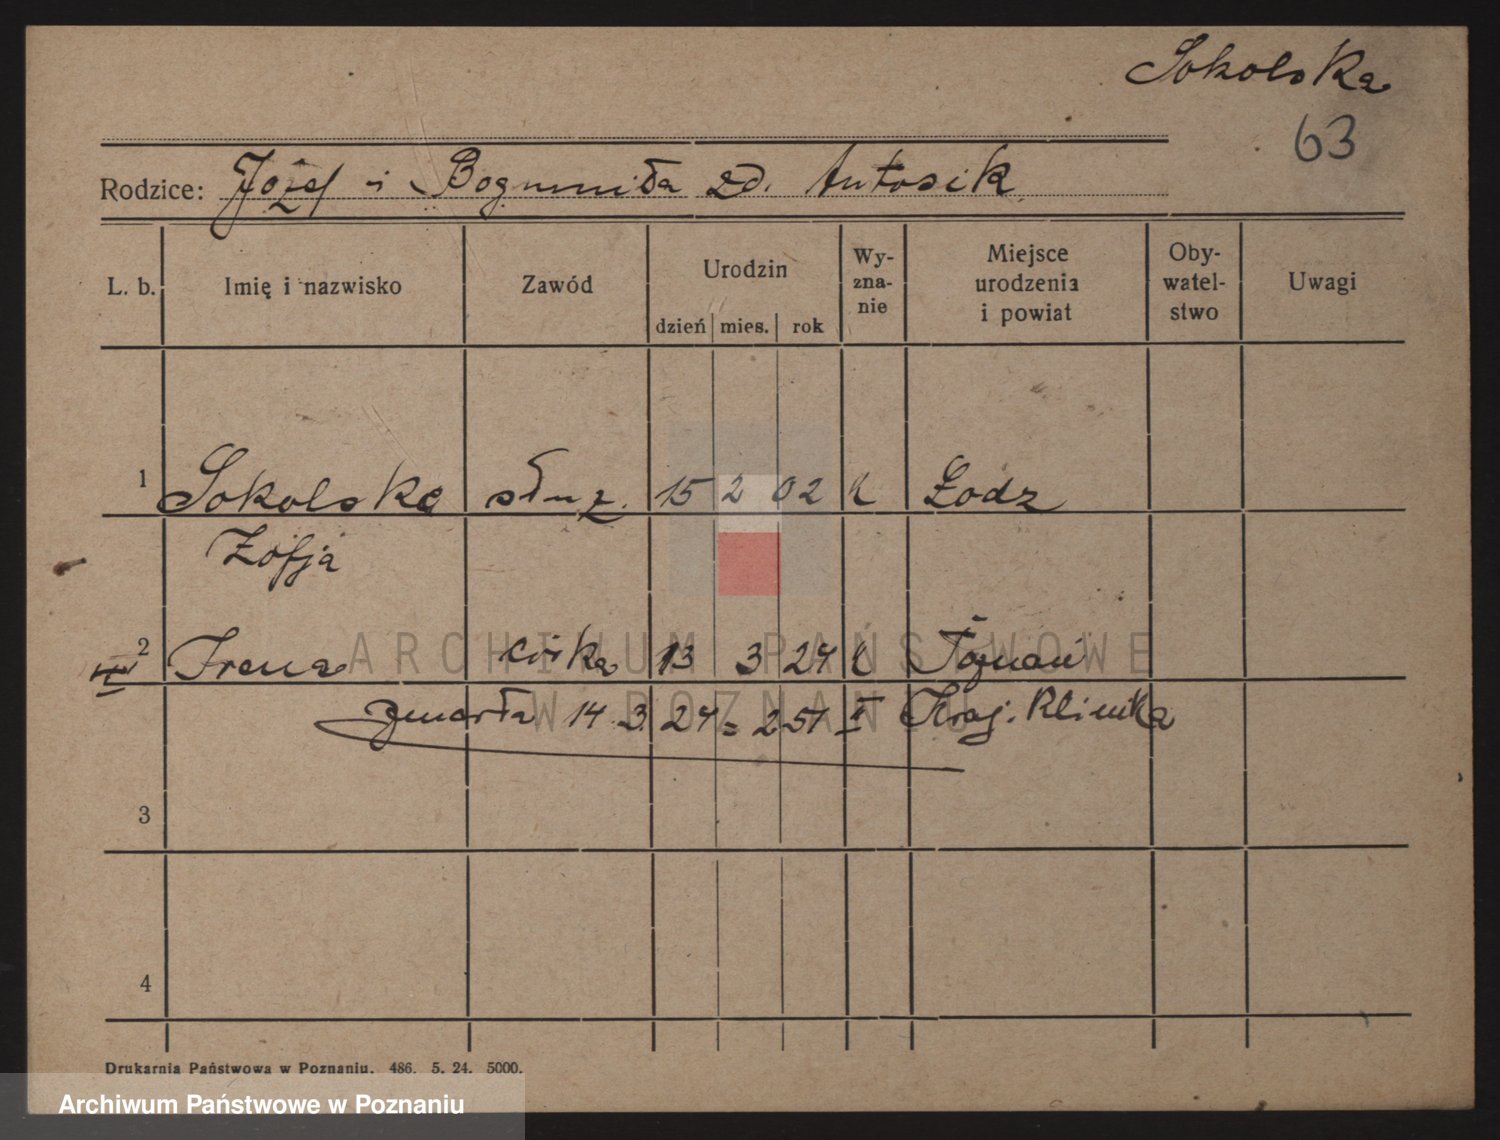 Sokolska
63
Rodzice: Józef i Bogumiła zd. Antosik
L. b. Imię i nazwisko Zawód Urodzin dzień mies. rok Wy-zna-nie Miejsce urodzenia i powiat Oby-watel-stwo Uwagi
1 Sokolska służ. 15 2 02 k Łodz
Zofja
2 Irena córka 13 3 24 k Poznań
zmarła 14 3 24 = 251 II Kraj. Klinika
3
4
ARCHIWUM PAŃSTWOWE
W POZNANIU
Drukarnia Państwowa w Poznaniu. 486. 5. 24. 5000.
Archiwum Państwowe w Poznaniu